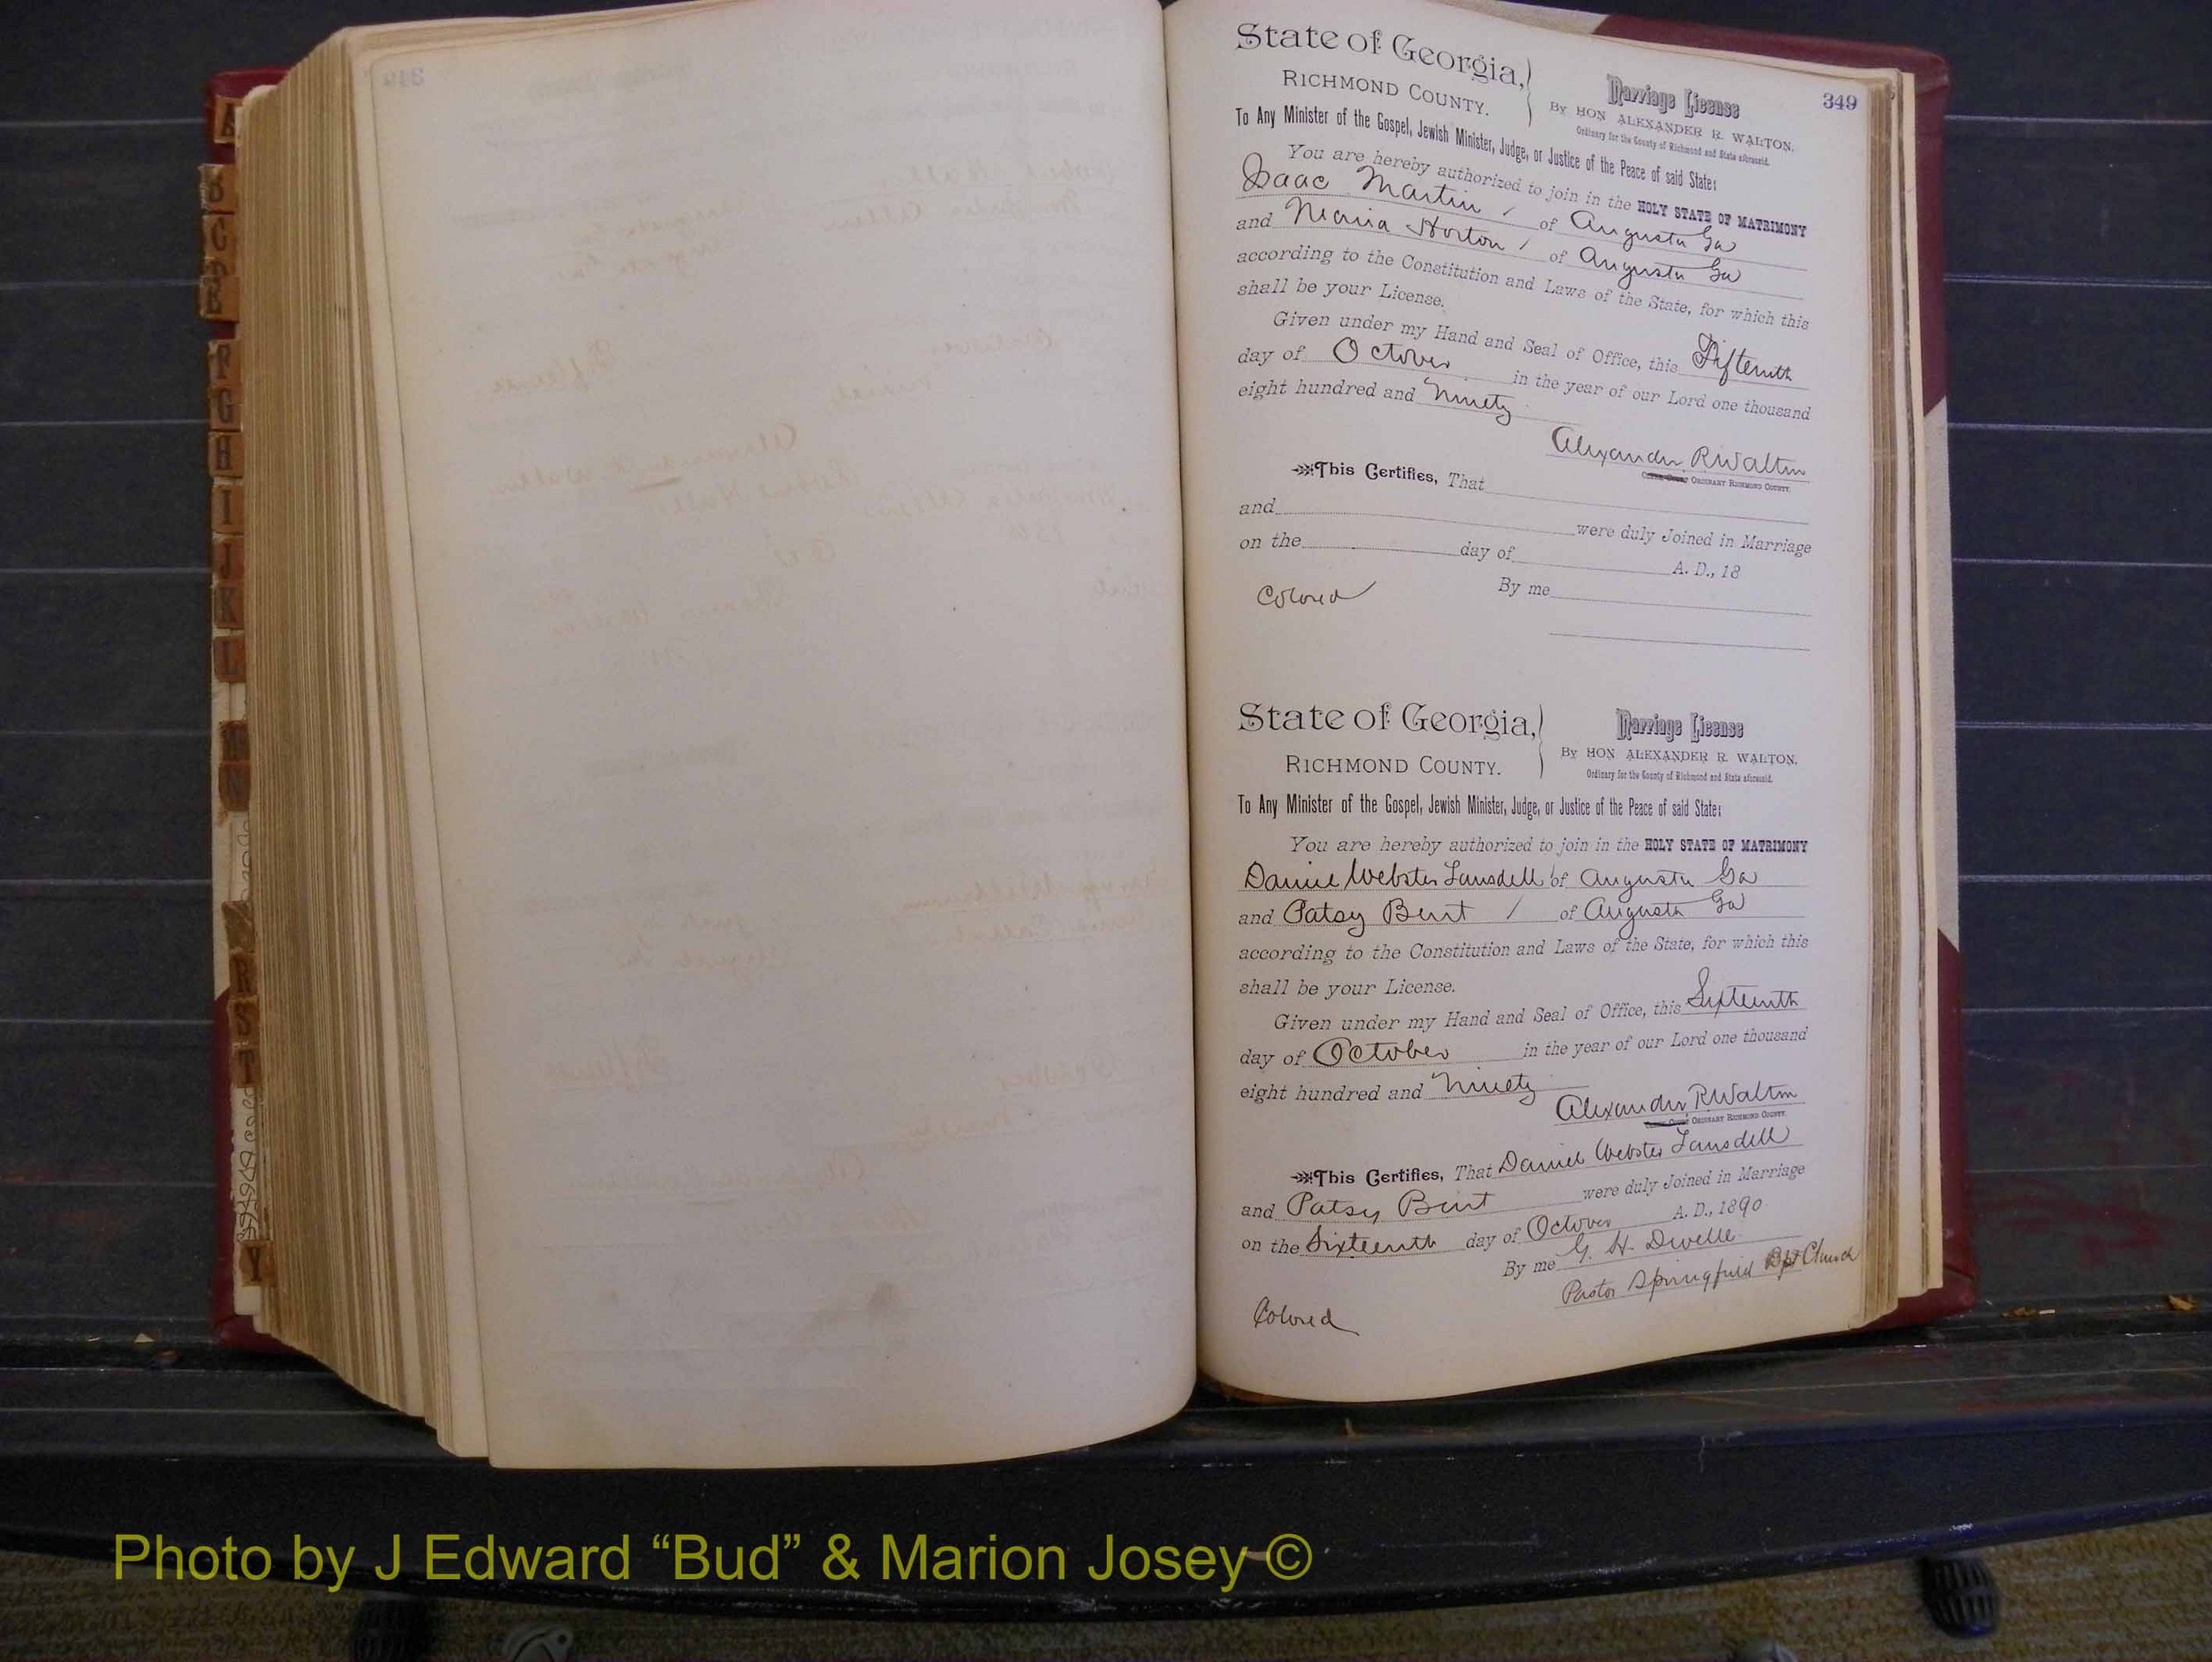 State of Georgia,
RICHMOND COUNTY.
Marriage License
By HON ALEXANDER R. WALTON,
Ordinary for the County of Richmond and State aforesaid.
349
To Any Minister of the Gospel, Jewish Minister, Judge, or Justice of the Peace of said State:
You are hereby authorized to join in the HOLY STATE OF MATRIMONY
Isaac Martin / of Augusta Ga
and Maria Horton / of Augusta Ga
according to the Constitution and Laws of the State, for which this
shall be your License.
Given under my Hand and Seal of Office, this Fifteenth
day of October in the year of our Lord one thousand
eight hundred and Ninety
Alexander R Walton
ORDINARY RICHMOND COUNTY.
This Certifies, That
and were duly Joined in Marriage
on the day of A. D., 18
By me
Colored
State of Georgia,
RICHMOND COUNTY.
Marriage License
By HON ALEXANDER R. WALTON,
Ordinary for the County of Richmond and State aforesaid.
To Any Minister of the Gospel, Jewish Minister, Judge, or Justice of the Peace of said State:
You are hereby authorized to join in the HOLY STATE OF MATRIMONY
Daniel Webster Lansdell of Augusta Ga
and Patsy Burt / of Augusta Ga
according to the Constitution and Laws of the State, for which this
shall be your License.
Given under my Hand and Seal of Office, this Sixteenth
day of October in the year of our Lord one thousand
eight hundred and Ninety
Alexander R Walton
ORDINARY RICHMOND COUNTY.
This Certifies, That Daniel Webster Lansdell
and Patsy Burt were duly Joined in Marriage
on the Sixteenth day of October A. D., 1890
By me G. H. Dwelle
Pastor Springfield Bpt Church
Colored
B
C
F
G
H
I
J
K
L
R
S
T
Y
Photo by J Edward “Bud” & Marion Josey ©